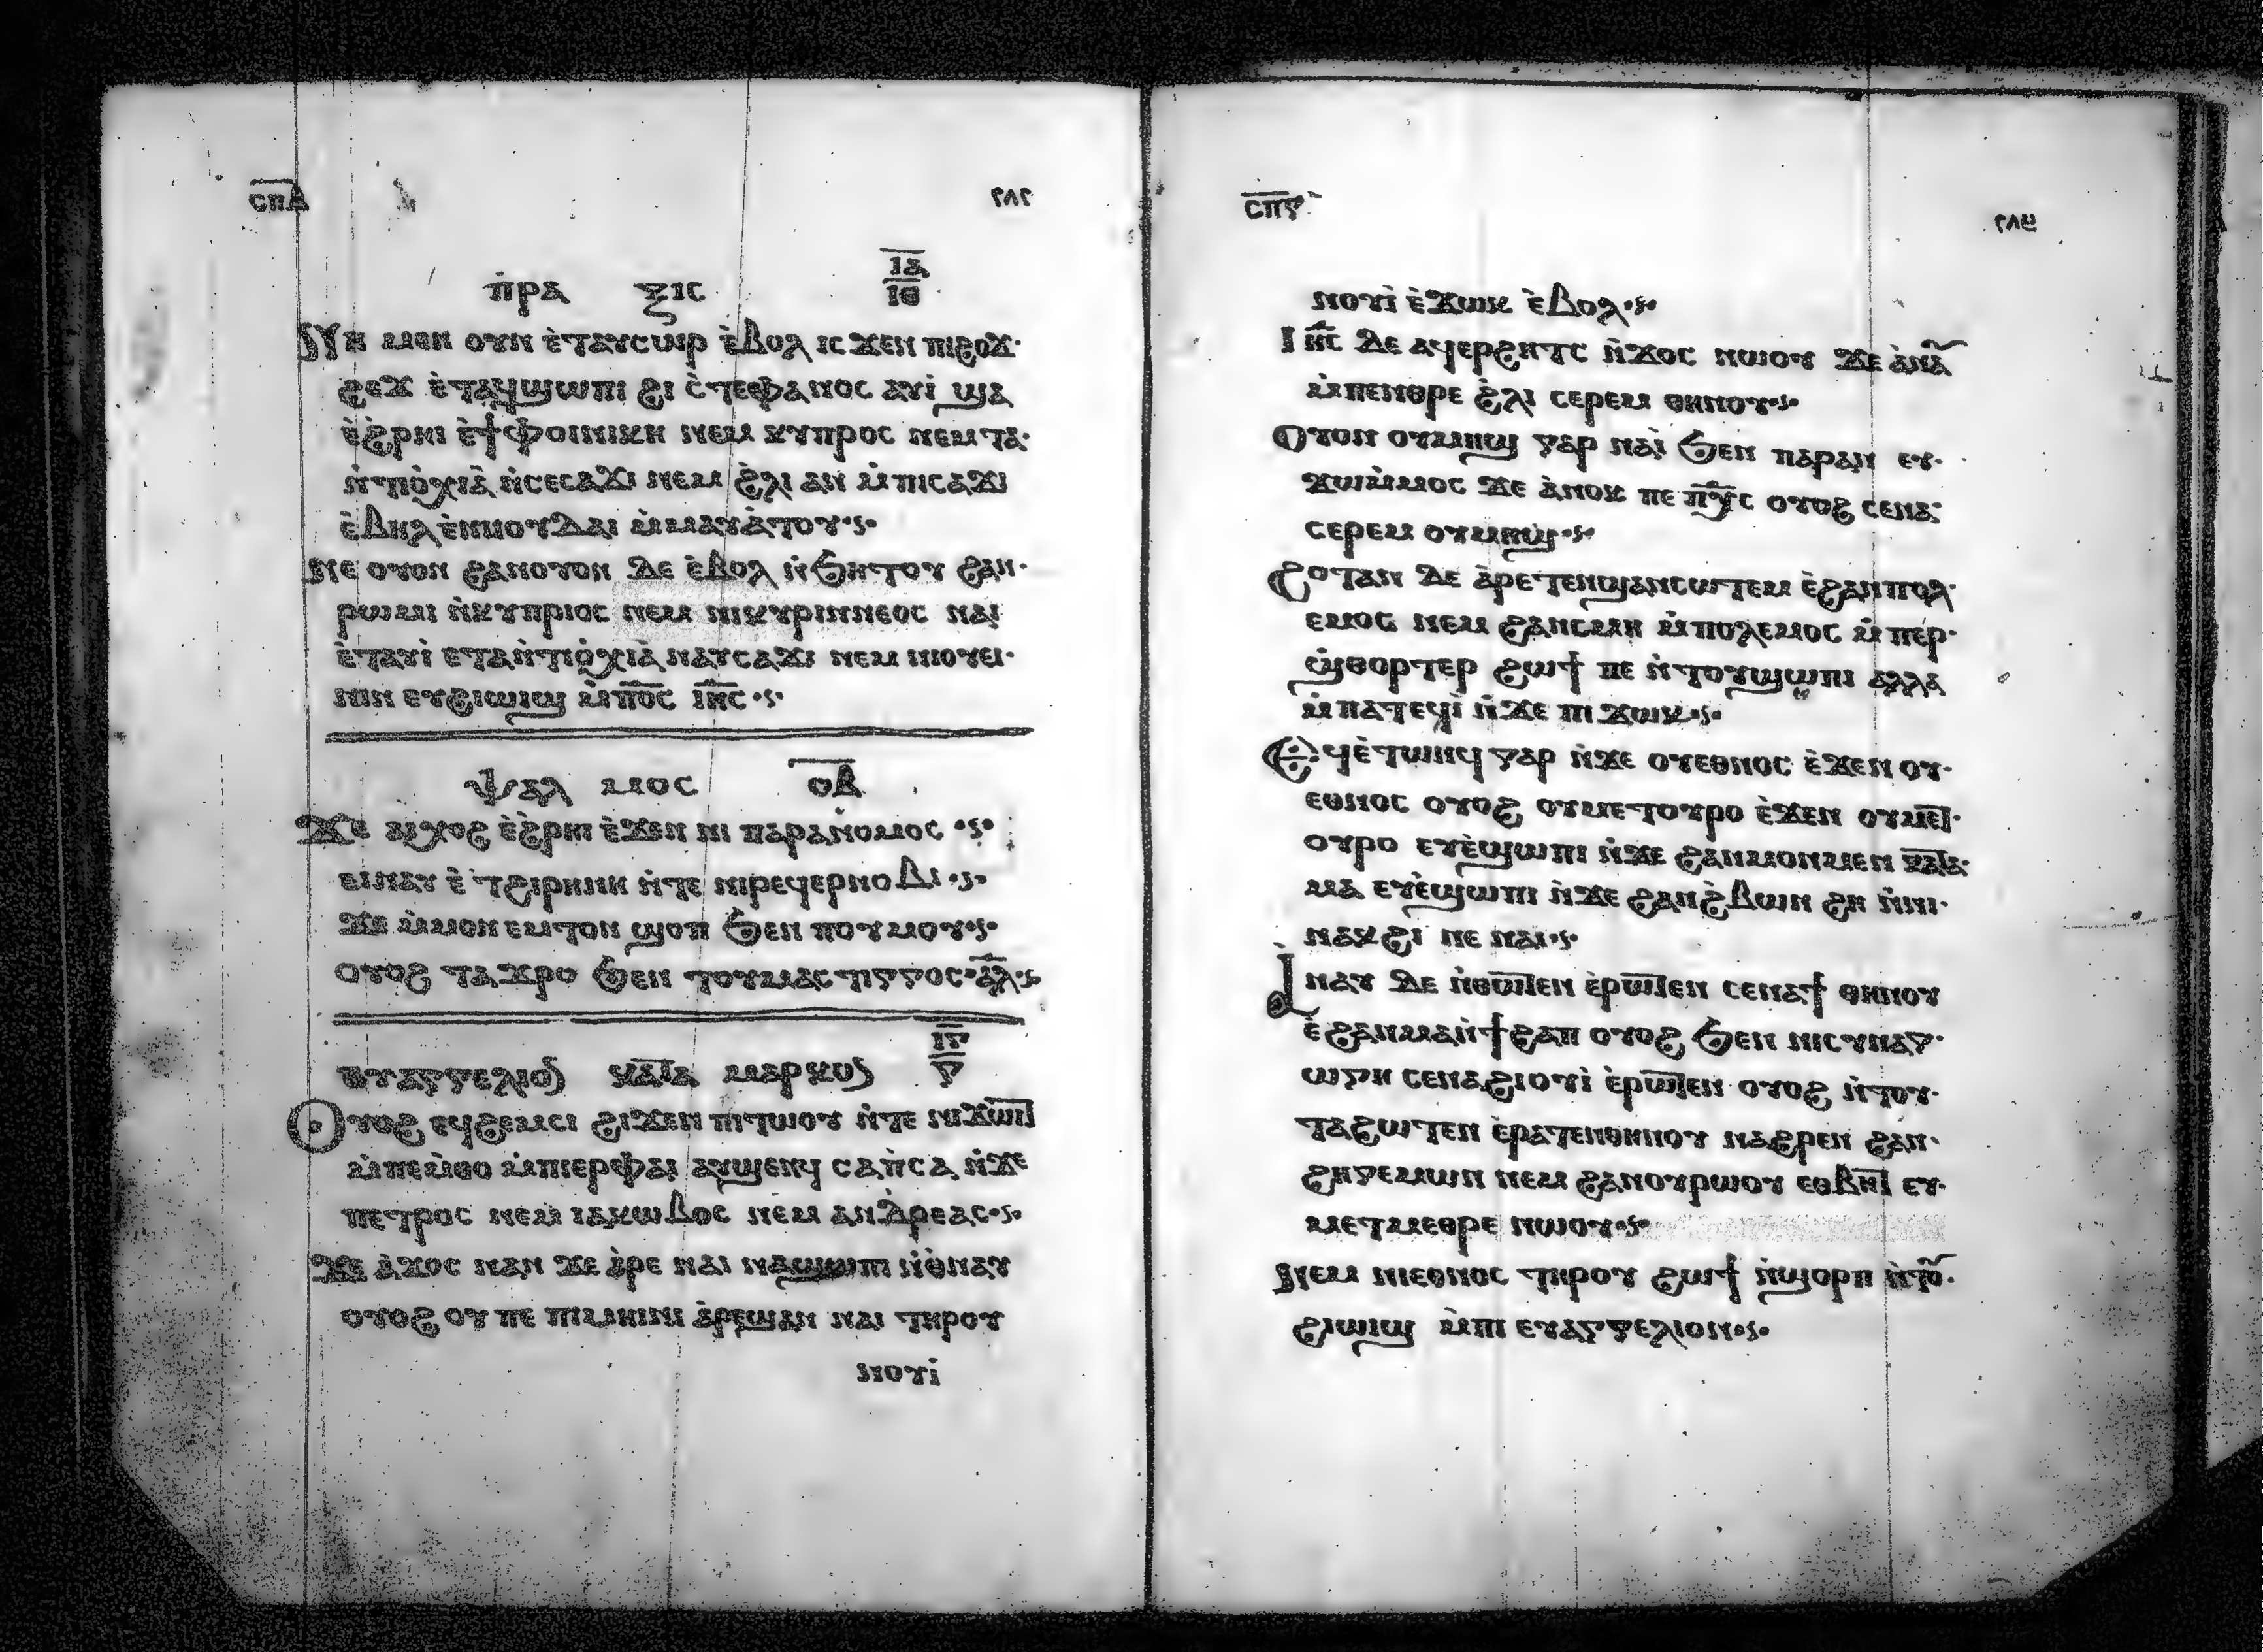 ⲥⲡⲇ ٢٨٢
ⲡⲣⲁ ⲝⲓⲥ ⲓⲁ
ⲓⲑ
ⲛⲏ ⲙⲉⲛ ⲟⲩⲛ ⲉ̀ⲧⲁⲩⲥⲱⲣ ⲉ̀ⲃⲟⲗ ⲓⲥϫⲉⲛ ⲡⲓϩⲟϫ·
ϩⲉϫ ⲉ̀ⲧⲁϥϣⲱⲡⲓ ϩⲓ ⲥ̀ⲧⲉⲫⲁⲛⲟⲥ ⲁⲩⲓ̀ ϣⲁ
ⲉ̀ϩ̀ⲣⲏⲓ ⲉ̀ϯⲫⲟⲓⲛⲓⲕⲏ ⲛⲉⲙ ⲕⲩⲡⲣⲟⲥ ⲛⲉⲙ ⲧⲁ·
ⲛ̀ⲧⲓⲟ̀ⲭⲓⲁ̀ ⲛ̀ⲥⲉⲥⲁϫⲓ ⲛⲉⲙ ϩ̀ⲗⲓ ⲁⲛ ⲙ̀ⲡⲓⲥⲁϫⲓ
ⲉ̀ⲃⲏⲗ ⲉ̀ⲛⲓⲟⲩⲇⲁⲓ ⲙ̀ⲙⲁⲩⲁ̀ⲧⲟⲩ·ⲋ·
ⲛⲉ ⲟⲩⲟⲛ ϩⲁⲛⲟⲩⲟⲛ ⲇⲉ ⲉ̀ⲃⲟⲗ ⲛ̀ϧⲏⲧⲟⲩ ϩⲁⲛ·
ⲣⲱⲙⲓ ⲛ̀ⲕⲩⲡⲣⲓⲟⲥ ⲛⲉⲙ ⲛⲓⲕⲩⲣⲓⲛⲛⲉⲟⲥ ⲛⲁⲓ
ⲉ̀ⲧⲁⲩⲓ̀ ⲉⲧⲁⲛ̀ⲧⲓⲟ̀ⲭⲓⲁ̀ ⲛⲁⲩⲥⲁϫⲓ ⲛⲉⲙ ⲛⲓⲟⲩⲉⲓ·
ⲛⲓⲛ ⲉⲩϩⲓⲱⲓϣ ⲙ̀ⲡⲟ̅ⲥ̅ ⲓⲏ̅ⲥ̅ ·ⲋ·
ⲯⲁⲗ ⲙⲟⲥ ⲟⲃ
ϫⲉ ⲁⲓⲭⲟϩ ⲉ̀ϩ̀ⲣⲏⲓ ⲉ̀ϫⲉⲛ ⲛⲓ ⲡⲁⲣⲁⲛⲟⲙⲟⲥ ·ⲋ·
ⲉⲓⲛⲁⲩ ⲉ̀ ⲧϩⲓⲣⲏⲛⲏ ⲛ̀ⲧⲉ ⲛⲓⲣⲉϥⲉⲣⲛⲟⲃⲓ ·ⲋ·
ϫⲉ ⲙ̀ⲙⲟⲛ ⲉⲙⲧⲟⲛ ϣⲟⲡ ϧⲉⲛ ⲡⲟⲩⲙⲟⲩ·ⲋ·
ⲟⲩⲟϩ ⲧⲁϫⲣⲟ ϧⲉⲛ ⲧⲟⲩⲙⲁⲥⲧⲓⲅⲅⲟⲥ·ⲁ̅ⲗ̅·ⲋ
ⲓⲅ
ⲉⲩⲁⲅⲅⲉⲗⲓⲟⲛ ⲕⲁⲧⲁ ⲙⲁⲣⲕⲟⲛ ⲅ
ⲟⲩⲟϩ ⲉϥϩⲉⲙⲥⲓ ϩⲓϫⲉⲛ ⲡⲓⲧⲱⲟⲩ ⲛ̀ⲧⲉ ⲛⲓϫⲱⲓⲧ
ⲙ̀ⲡⲉⲙ̀ⲑⲟ ⲙ̀ⲡⲓⲉⲣⲫⲁⲓ ⲁⲩϣⲉⲛϥ ⲥⲁⲡ̀ⲥⲁ ⲛ̀ϫⲉ
ⲡⲉⲧⲣⲟⲥ ⲛⲉⲙ ⲓⲁⲕⲱⲃⲟⲥ ⲛⲉⲙ ⲁⲛⲇⲣⲉⲁⲥ·ⲋ·
ϫⲉ ⲁ̀ϫⲟⲥ ⲛⲁⲛ ϫⲉ ⲁ̀ⲣⲉ ⲛⲁⲓ ⲛⲁϣⲱⲡⲓ ⲛ̀ⲑ̀ⲛⲁⲩ
ⲟⲩⲟϩ ⲟⲩ ⲡⲉ ⲡⲓⲙⲏⲓⲛⲓ ⲁ̀ⲣⲉϣⲁⲛ ⲛⲁⲓ ⲧⲏⲣⲟⲩ
ⲛⲟⲩⲓ̀
ⲥⲡⲅ ٢٨٣
ⲛⲟⲩⲓ̀ ⲉ̀ϫⲱⲕ ⲉ̀ⲃⲟⲗ·ⲋ·
ⲓⲏ̅ⲥ̅ ⲇⲉ ⲁϥⲉⲣϩⲏⲧⲥ ⲛ̀ϫⲟⲥ ⲛⲱⲟⲩ ϫⲉ ⲁ̀ⲛⲁ̅
ⲙ̀ⲡⲉⲛⲑⲣⲉ ϩ̀ⲗⲓ ⲥⲉⲣⲉⲙ ⲑⲏⲛⲟⲩ·ⲋ·
ⲟⲩⲟⲛ ⲟⲩⲙⲏϣ ⲅⲁⲣ ⲛⲁⲓ̀ ϧⲉⲛ ⲡⲁⲣⲁⲛ ⲉⲩ·
ϫⲱⲙ̀ⲙⲟⲥ ϫⲉ ⲁ̀ⲛⲟⲕ ⲡⲉ ⲡⲭ̅ⲥ ⲟⲩⲟϩ ⲥⲉⲛⲁ·
ⲥⲉⲣⲉⲙ ⲟⲩⲙⲏϣ·ⲋ·
ϩⲟⲧⲁⲛ ⲇⲉ ⲁ̀ⲣⲉⲧⲉⲛϣⲁⲛⲥⲱⲧⲉⲙ ⲉ̀ϩⲁⲛⲡⲟⲗ·
ⲉⲙⲟⲥ ⲛⲉⲙ ϩⲁⲛⲥⲙⲏ ⲙ̀ⲡⲟⲗⲉⲙⲟⲥ ⲙ̀ⲡⲉⲣ·
ϣ̀ⲑⲟⲣⲧⲉⲣ ϩⲱϯ ⲡⲉ ⲛ̀ⲧⲟⲩϣⲱⲡⲓ ⲁⲗⲗⲁ
ⲙ̀ⲡⲁⲧⲉϥⲓ̀ ⲛ̀ϫⲉ ⲡⲓ ϫⲱⲕ·ⲋ·
ⲉϥⲉ̀ⲧⲱⲛϥ ⲅⲁⲣ ⲛ̀ϫⲉ ⲟⲩⲉⲑⲛⲟⲥ ⲉ̀ϫⲉⲛ ⲟⲩ·
ⲉⲑⲛⲟⲥ ⲟⲩⲟϩ ⲟⲩⲙⲉⲧⲟⲩⲣⲟ ⲉ̀ϫⲉⲛ ⲟⲩⲙⲉⲧ·
ⲟⲩⲣⲟ ⲉⲩⲉ̀ϣⲱⲡⲓ ⲛ̀ϫⲉ ϩⲁⲛⲙⲟⲛⲙⲉⲛ ⲕⲁⲧⲁ·
ⲙⲁ ⲉⲩⲉ̀ϣⲱⲡⲓ ⲛ̀ϫⲉ ϩⲁⲛϩ̀ⲃⲱⲛ ϩⲏ ⲛ̀ⲛⲓ·
ⲛⲁⲕϩⲓ ⲛⲉ ⲛⲁⲓ·ⲋ·
ⲁⲛⲁⲩ ⲇⲉ ⲛ̀ⲑⲱⲧⲉⲛ ⲉ̀ⲣⲱⲧⲉⲛ ⲥⲉⲛⲁϯ ⲑⲏⲛⲟⲩ
ⲉ̀ϩⲁⲛⲙⲁⲛ̀ϯϩⲁⲡ ⲟⲩⲟϩ ϧⲉⲛ ⲛⲓⲥⲩⲛⲁⲅ·
ⲱⲅⲏ ⲥⲉⲛⲁϩⲓⲟⲩⲓ̀ ⲉ̀ⲣⲱⲧⲉⲛ ⲟⲩⲟϩ ⲛ̀ⲧⲟⲩ·
ⲧⲁϩⲱⲧⲉⲛ ⲉ̀ⲣⲁⲧⲉⲛⲑⲏⲛⲟⲩ ⲛⲁϩⲣⲉⲛ ϩⲁⲛ·
ϩⲏⲅⲉⲙⲱⲛ ⲛⲉⲙ ϩⲁⲛⲟⲩⲣⲱⲟⲩ ⲉⲑⲃⲏⲧ ⲉⲩ·
ⲙⲉⲧⲙⲉⲑⲣⲉ ⲛⲱⲟⲩ·ⲋ·
ⲛⲉⲙ ⲛⲓⲉⲑⲛⲟⲥ ⲧⲏⲣⲟⲩ ϩⲱϯ ⲛ̀ϣⲟⲣⲡ ⲛ̀ⲧⲟ̅·
ϩⲓⲱⲓϣ ⲙ̀ⲡⲓ ⲉⲩⲁⲅⲅⲉⲗⲓⲟⲛ·ⲋ·